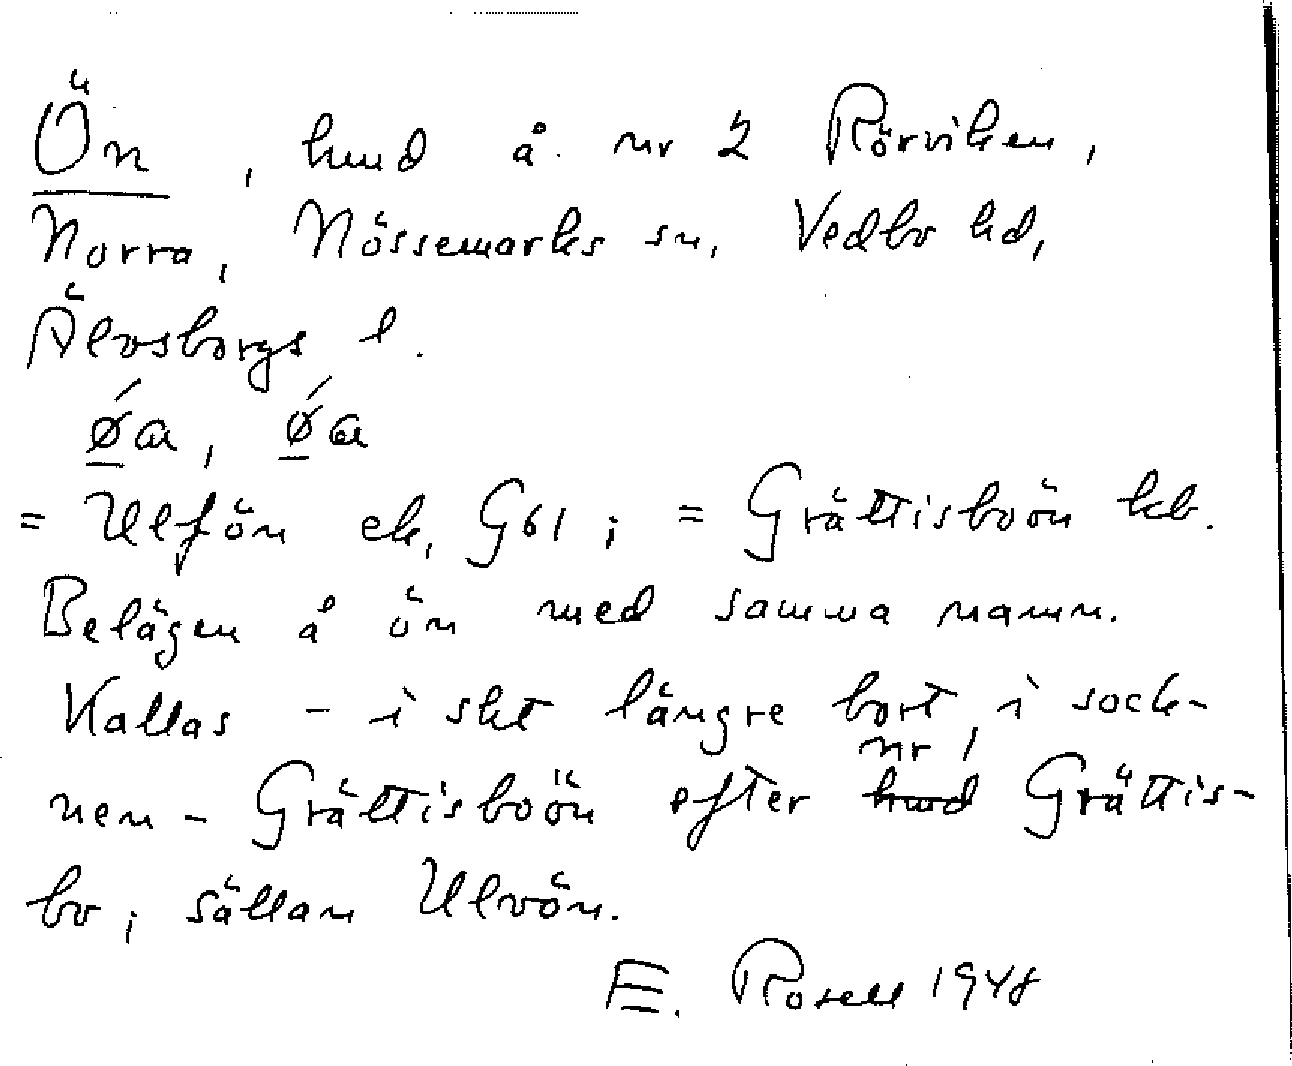 Ön, hmd å nr 2 Rörviken,
Norra, Nössemarks sn, Vedbo hd,
Älvsborgs l.
ǿa, ǿa
= Ulfön ek, G61; = Grättisboön kb.
Belägen å ön med samma namn.
Kallas - i sht längre bort i sock-
nen - Grättisboön efter nr 1 Grättis-
bo; sällan Ulvön.
E. Rosell 1948